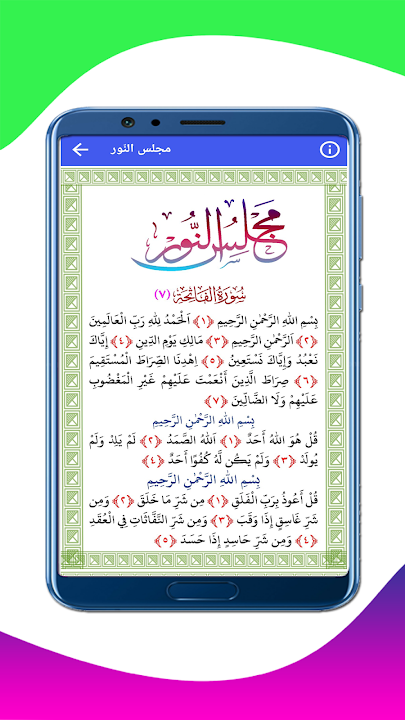 مجلس النور
مَجْلِسُ النُّور
سُورَةُ الفَاتِحَة (٧)
بِسْمِ اللهِ الرَّحْمٰنِ الرَّحِيْمِ ﴿١﴾ اَلْحَمْدُ لِلّٰهِ رَبِّ الْعَالَمِيْنَ
﴿٢﴾ اَلرَّحْمٰنِ الرَّحِيْمِ ﴿٣﴾ مَالِكِ يَوْمِ الدِّيْنِ ﴿٤﴾ إِيَّاكَ
نَعْبُدُ وَإِيَّاكَ نَسْتَعِيْنُ ﴿٥﴾ اِهْدِنَا الصِّرَاطَ الْمُسْتَقِيْمَ
﴿٦﴾ صِرَاطَ الَّذِيْنَ أَنْعَمْتَ عَلَيْهِمْ غَيْرِ الْمَغْضُوْبِ
عَلَيْهِمْ وَلَا الضَّالِّيْنَ ﴿٧﴾
بِسْمِ اللهِ الرَّحْمٰنِ الرَّحِيْمِ
قُلْ هُوَ اللهُ أَحَدٌ ﴿١﴾ اَللهُ الصَّمَدُ ﴿٢﴾ لَمْ يَلِدْ وَلَمْ
يُولَدْ ﴿٣﴾ وَلَمْ يَكُن لَّهُ كُفُوًا أَحَدٌ ﴿٤﴾
بِسْمِ اللهِ الرَّحْمٰنِ الرَّحِيْمِ
قُلْ أَعُوذُ بِرَبِّ الْفَلَقِ ﴿١﴾ مِن شَرِّ مَا خَلَقَ ﴿٢﴾ وَمِن
شَرِّ غَاسِقٍ إِذَا وَقَبَ ﴿٣﴾ وَمِن شَرِّ النَّفَّاثَاتِ فِي الْعُقَدِ
﴿٤﴾ وَمِن شَرِّ حَاسِدٍ إِذَا حَسَدَ ﴿٥﴾